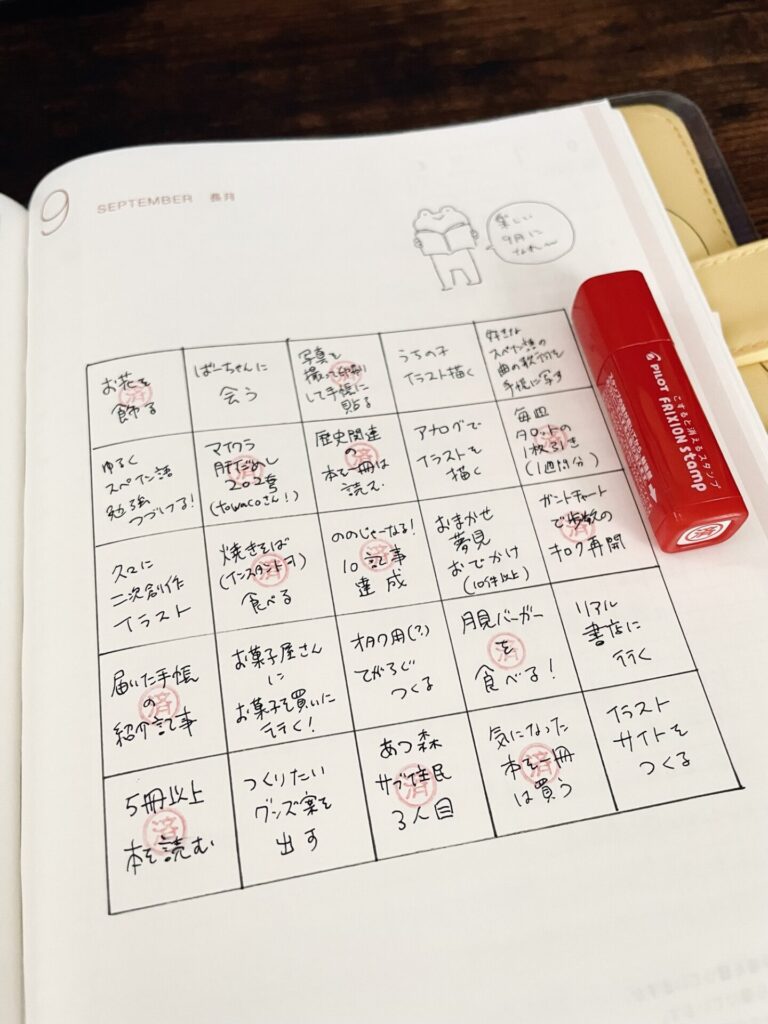 9
SEPTEMBER 長月
楽しい
9月に
なれ〜
お花を
済
飾る
ばーちゃんに
会う
写真を
撮って印刷
済
して手帳に
貼る
うちの子
イラスト描く
好きな
スペイン語の
曲の歌詞を
手帳に写す
ゆるく
スペイン語
勉強
つづける!
マイクラ
肝だめし
済
202号
(towacoさん!)
歴史関連
の
済
本を一冊は
読む
アナログで
イラストを
描く
毎晩
タロットの
済
1枚引き
(1週間分)
久々に
二次創作
イラスト
焼きそば
(インスタント可)
済
食べる
ののじゃーなる!
10記事
済
達成
おまかせ
夢見
おでかけ
(10件以上)
ガントチャート
で歩数の
済
キロク再開
届いた手帳
の
済
紹介記事
お菓子屋さん
に
お菓子を買いに
行く!
オタク用(?)
てがろぐ
つくる
月見バーガー
を
済
食べる!
リアル
書店に
行く
5冊以上
済
本を読む
つくりたい
グッズ案を
出す
あつ森
サブ住民
済
3人目
気になった
本を一冊
済
は買う
イラスト
サイトを
つくる
PILOT FRIXION stamp
こすると消えるスタンプ
済